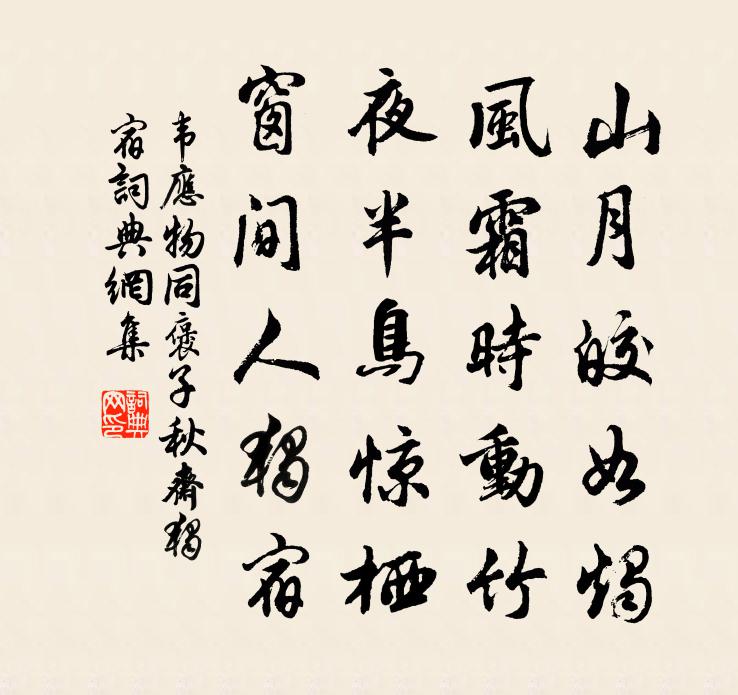 山月皎如燭
風霜時動竹
夜半鳥惊栖
窗间人獨宿
韦應物同褒子秋齋獨
宿詞典網集
詞典
网印